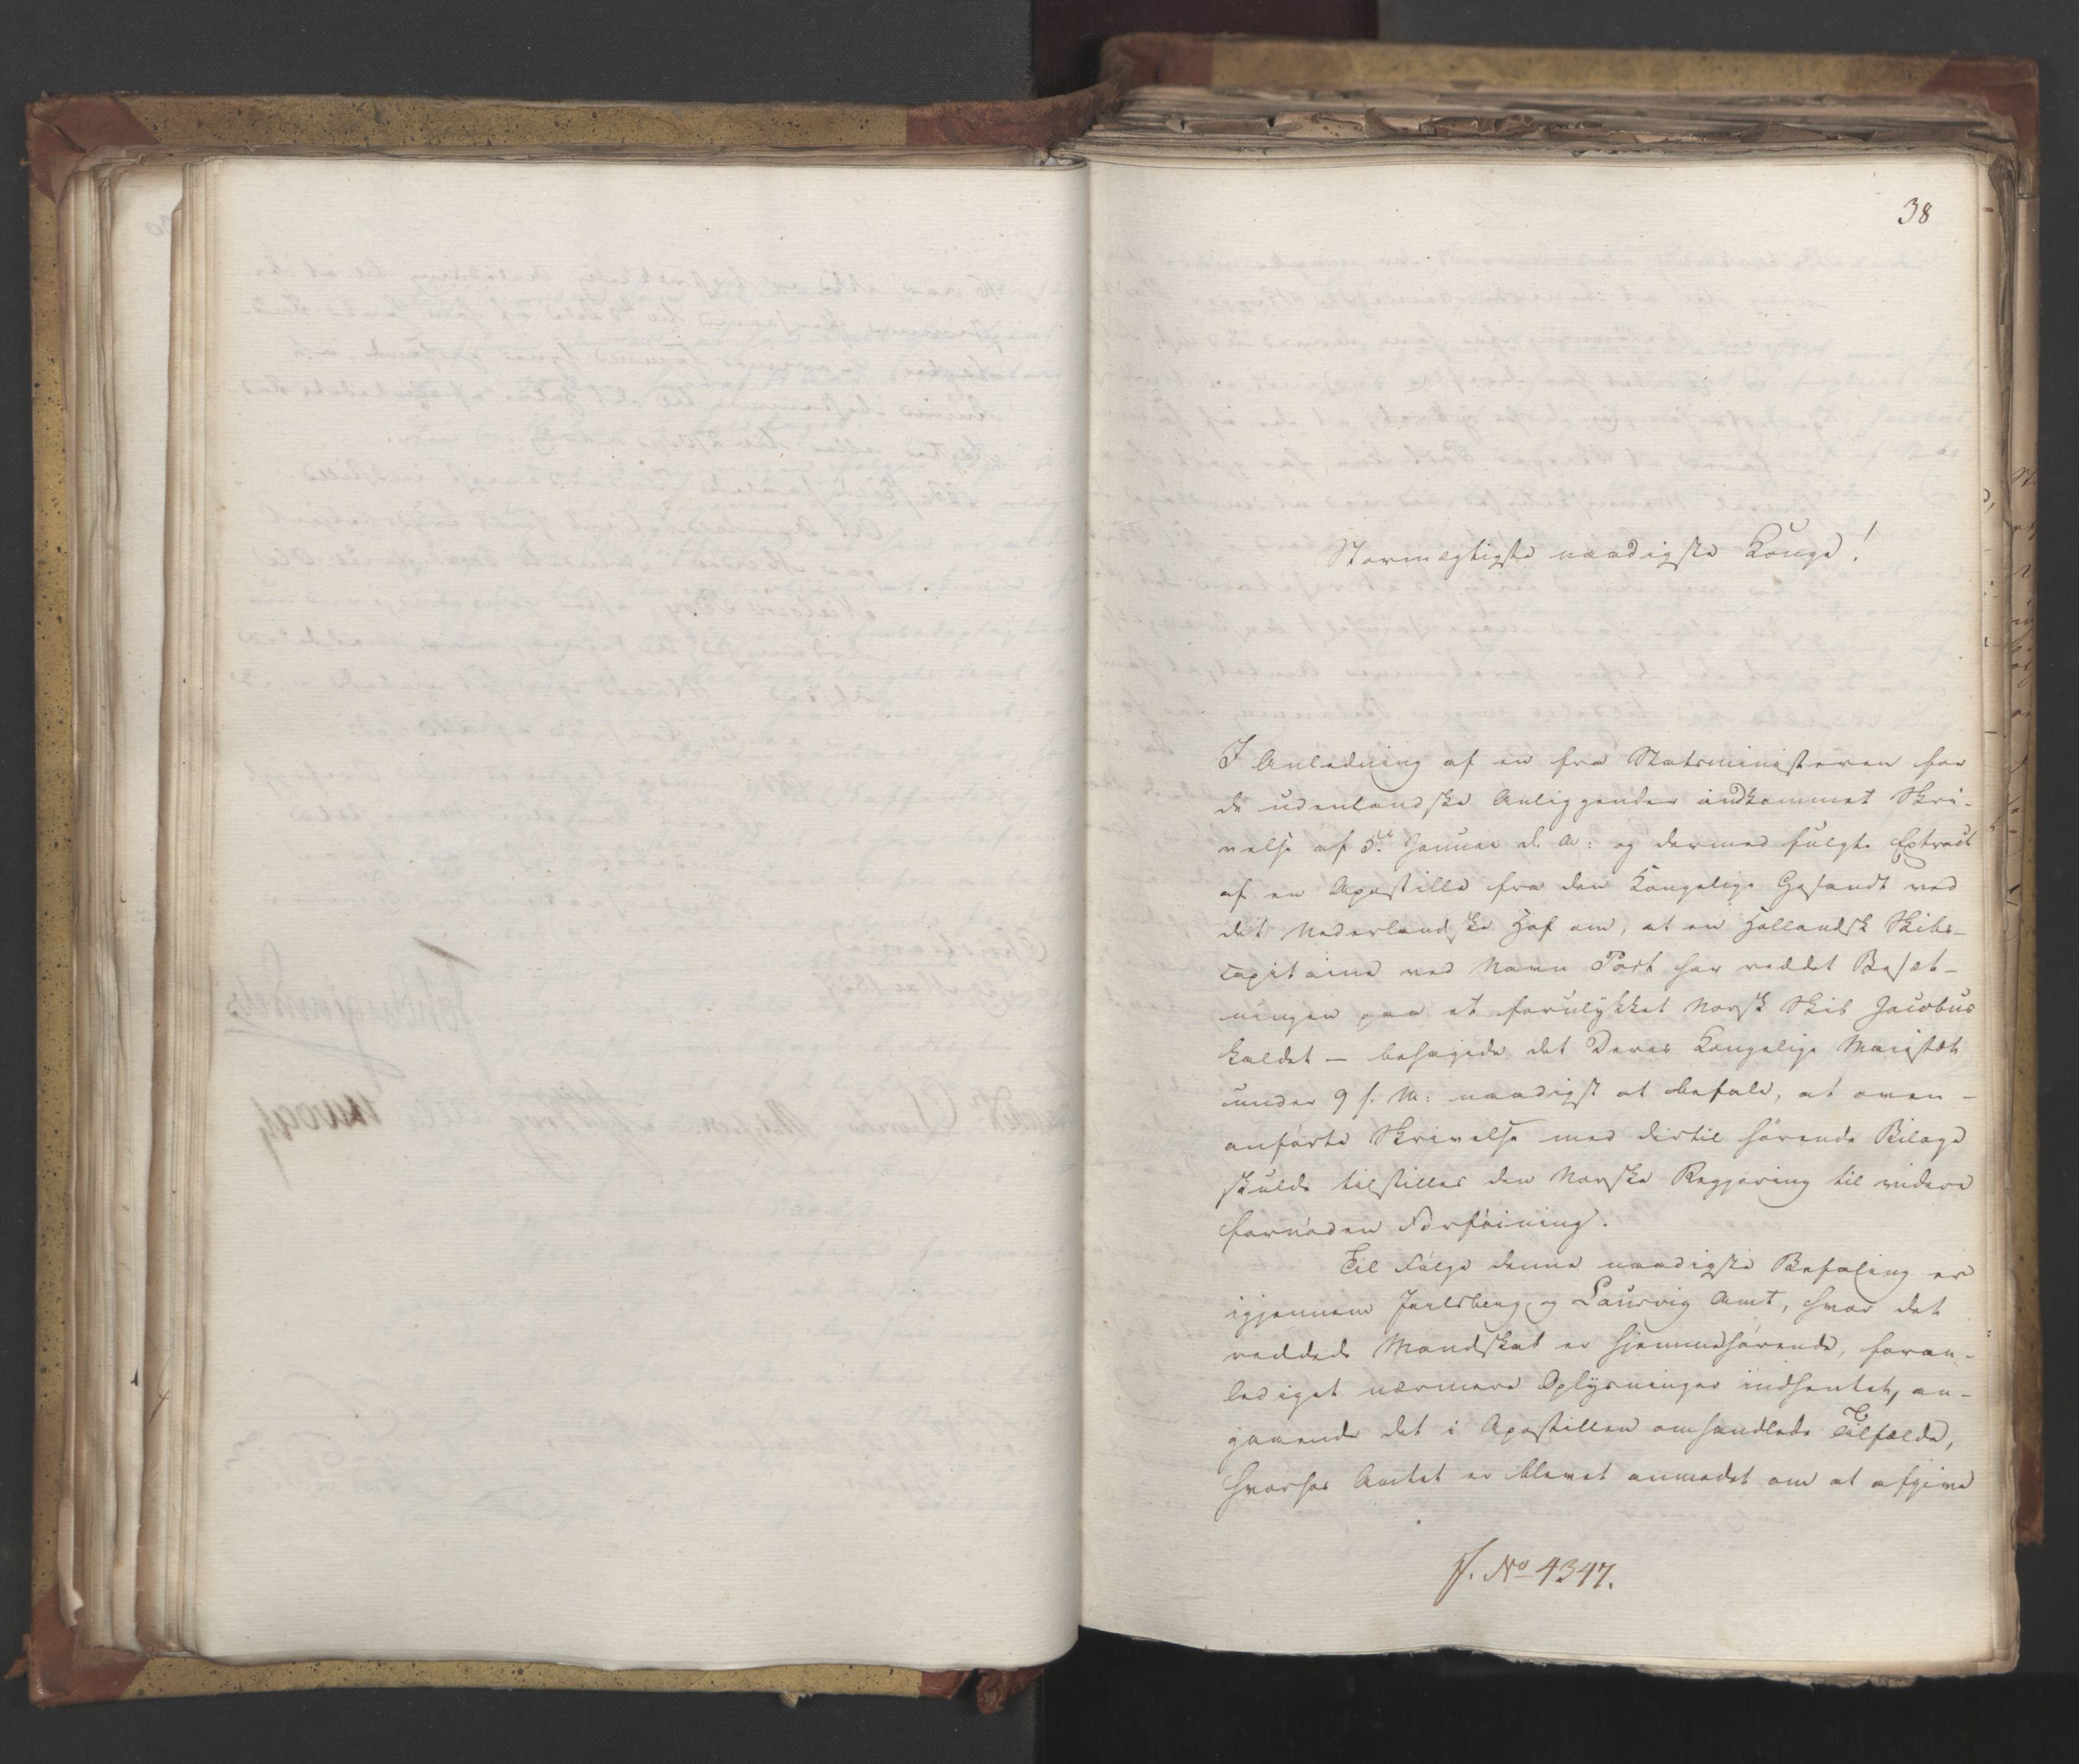 38
Stormægtigste naadigste Konge!
I Anledning af en fra Statsministeren for
de udenlandske Anliggender indkommet Skri-
velse af 5te Januar d. A: og dermed fulgte Extract
af en Apostille fra den Kongelige Gesandt ved
det Nederlandske Hof om, at en Hollandsk Skibs-
capitaine ved Navn Post har reddet Besæt-
ningen paa et forulykket Norsk Skib Jacobus
kaldet – behagede det Deres Kongelige Maiestæt
under 9 s. M: naadigst at befale, at oven-
anførte Skrivelse med dertil hørende Bilage
skulde tilstilles den Norske Regjering til videre
fornøden Forføining.
Til Følge denne naadigste Befaling er
igjennem Jarlsberg og Laurvig Amt, hvor det
reddede Mandskab er hjemmehørende, foran-
lediget nærmere Oplysninger indhentet, an-
gaaende det i Apostillen omhandlede Tilfælde,
hvorhos Amtet er blevet anmodet om at afgive
No 4347.